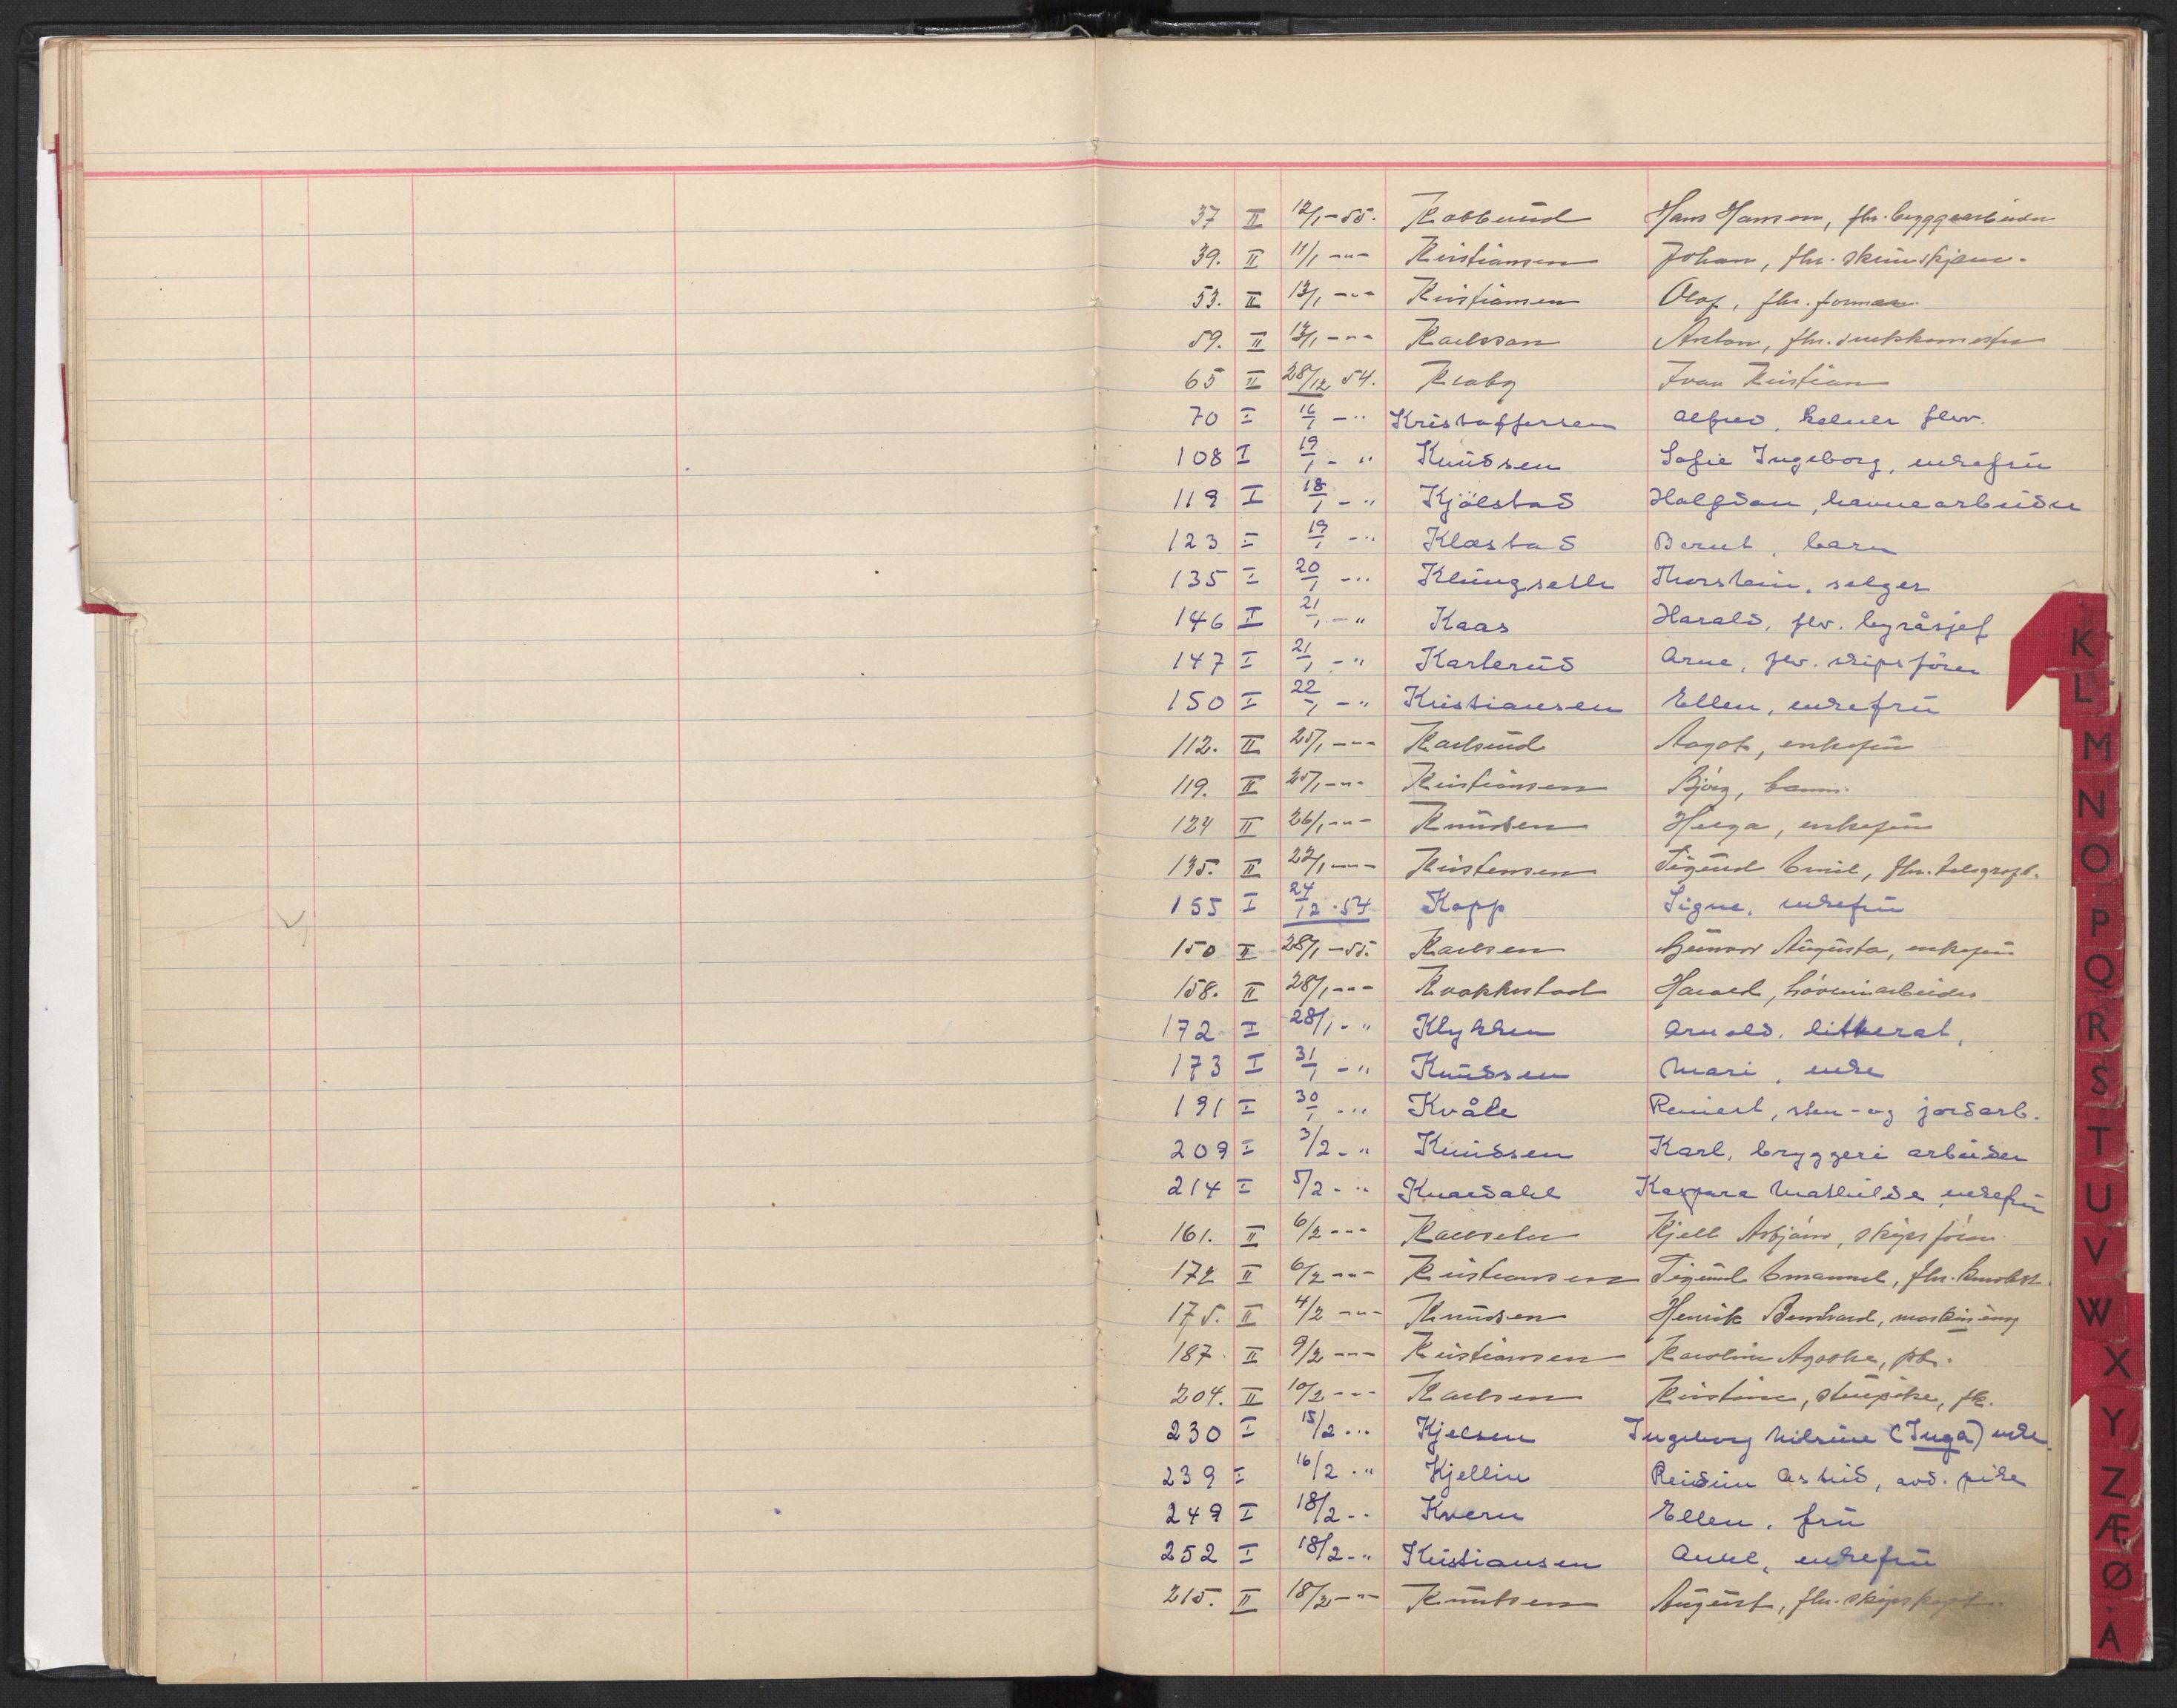 37 II 12/1-55. Kobberud Hans Hansen, fhv. bryggearbeider
39. II 11/1 -"- Kristiansen Johan, fhv.
53. II 13/1 -"- Kristiansen Olaf, fhv. forman
59. II 13/1 -"- Karlsson Anton, fhv.
65 II 28/12 54. Kraby Ivan Kristian
70 I 16/1 -" Kristoffersen Alfred, kelner fhv.
108 I 19/1 -" Knudsen Sofie Ingeborg, enkefru
119 I 18/1 -" Kjölstad Halfdan, havnearbeider
123 I 19/1 -" Klastad Bernt, barn
135 I 20/1 -" Klungseth Thorstein, selger
146 I 21/1 -" Kaas Harald, fhv. byråsjef
147 I 21/1 -" Karterud Arne, fhv. skipsförer
150 I 22/1 -" Kristiansen Ellen, enkefru
112. II 25/1 -"- Karlsrud Aagot, enkefru
119. II 25/1 -"- Kristiansen Bjørg, barn.
124 II 26/1 -"- Knudsen Helga, enkefru
135. II 27/1 -"- Kristensen Sigurd Emil, fhv. telegraf.
155 I 24/12.54 Kopp Signe, enkefru
150 II 28/1-55. Karlsen Gunvor Augusta, enkefru
158. II 28/1 -"- Krokkestad Harald,
172 I 28/1 -" Klykken Arnold, litterat,
173 I 31/1 -" Knudsen Mari, enke
191 I 30/1 -" Kvåle Reinert, sten- og jordarb.
209 I 3/2 -" Knudsen Karl, bryggeri arbeider
214 I 5/2 -" Knardahl Kaspara Mathilde enkefru
161. II 6/2 -"- Karlsen Kjell Asbjørn, skipsfører
172 II 6/2 -"- Kristiansen Sigurd Emanuel, fhv.
175. II 4/2 -"- Knudsen Henrik Bernhard, maskining
187. II 9/2 -"- Kristiansen Karoline Agathe,
204. II 10/2 -"- Karlsen Kristine, stuepike, fh.
230 I 15/2 -" Kjelsen Ingeborg Nilsine (Inga) enke
239 I 16/2 -" Kjellin Reidun Astrid, avd. pike
249 I 18/2 -" Kvern Ellen, fru
252 I 18/2 -" Kristiansen Anne, enkefru
215. II 18/2 -"- Knutsen August, fhv. skipskapt.
K
L
M
N
O
P
Q
R
S
T
U
V
W
X
Y
Z
Æ
Ø
Å